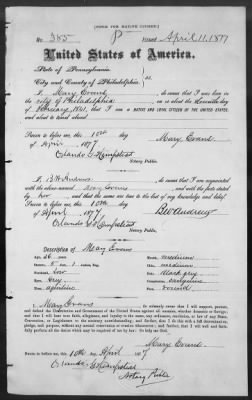 [FORM FOR NATIVE CITIZEN.]
No. 385 P Issued April 11, 1877
United States of America.
State of Pennsylvania
City and County of Philadelphia } ss.
I, Mary Evans, do swear that I was born in
the city of Philadelphia on or about the day of
February 1841, that I am a NATIVE AND LOYAL CITIZEN OF THE UNITED STATES,
and about to travel abroad.
Sworn to before me, this 10th day
of April 1877 Mary Evans
Orlando G. Hempstead
Notary Public.
I, do swear that I am acquainted
with the above-named Mary Evans and with the facts stated
by her, and that the same are true to the best of my knowledge and belief.
Sworn to before me, this 10th day
of April 1877
Orlando G. Hempstead
Notary Public.
Description of Mary Evans
Age, 36 years. Mouth, medium
Stature, 5 feet 1 inches, Eng. Chin, medium
Forehead, low Hair, black grey
Eyes, grey Complexion,
Nose, aquiline Face,
I, Mary Evans do solemnly swear that I will support, protect,
and defend the Constitution and Government of the United States against all enemies, whether domestic or foreign;
and that I will bear true faith, allegiance, and loyalty to the same, any ordinance, resolution, or law of any State,
Convention, or Legislature to the contrary notwithstanding; and further, that I do this with a full determination,
pledge, and purpose, without any mental reservation or evasion whatsoever; and further, that I will well and faith-
fully perform all the duties which may be required of me by law: So help me God.
Mary Evans
Sworn to before me, this 10th day April 1877
Orlando G. Hempstead
Notary Public